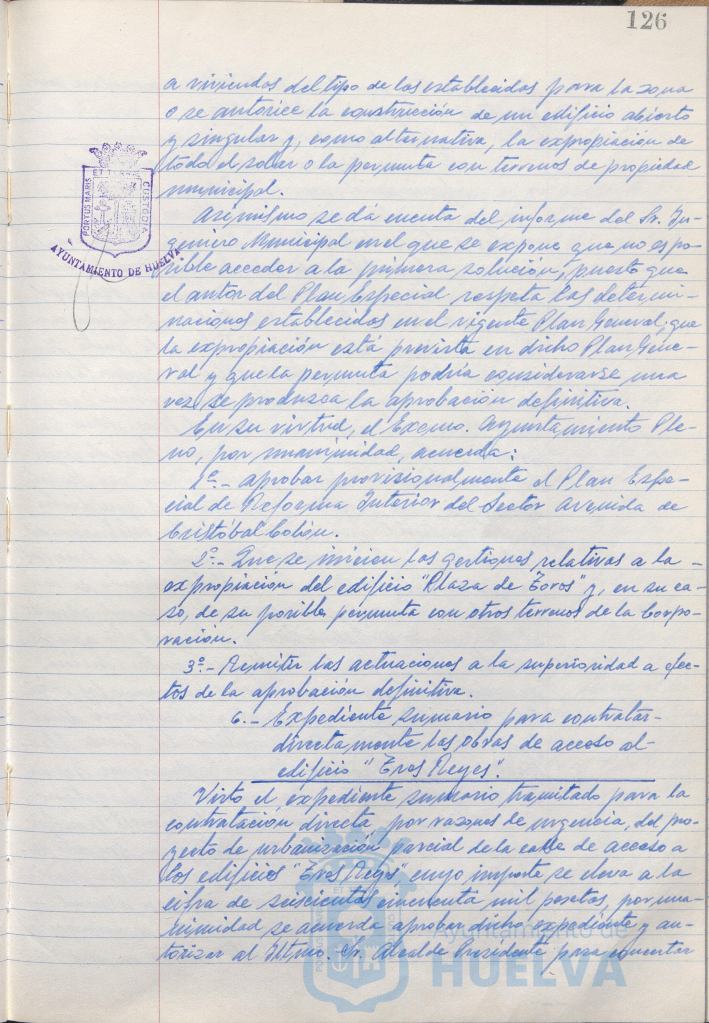 126
a viviendas del tipo de las establecidas para la zona
o se autorice la construcción de un edificio abierto
y singular y, como alternativa, la expropiación de
todo el solar o la permuta con terrenos de propiedad
municipal.
Asimismo se dá cuenta del informe del Sr. In-
geniero Municipal en el que se expone que no es po-
sible acceder a la primera solución, puesto que
el autor del Plan Especial respeta las determi-
naciones establecidas en el vigente Plan General; que
la expropiación está prevista en dicho Plan Gene-
ral y que la permuta podría considerarse una
vez se produzca la aprobación definitiva.
En su virtud, el Excmo. Ayuntamiento Ple-
no, por unanimidad, acuerda:
1º.- Aprobar provisionalmente el Plan Espe-
cial de Reforma Interior del Sector Avenida de
Cristóbal Colón.
2º.- Que se inicien las gestiones relativas a la -
expropiación del edificio "Plaza de Toros" y, en su ca-
so, de su posible permuta con otros terrenos de la Corpo-
ración.
3º.- Remitir las actuaciones a la superioridad a efec-
tos de la aprobación definitiva.
6.- Expediente sumario para contratar-
directamente las obras de acceso al-
edificio "Tres Reyes".
Visto el expediente sumario tramitado para la
contratación directa por razones de urgencia, del pro-
yecto de urbanización parcial de la calle de acceso a
los edificios "Tres Reyes" cuyo importe se eleva a la
cifra de seiscientas cincuenta mil pesetas, por una-
nimidad se acuerda aprobar dicho expediente y au-
torizar al Iltmo. Sr. Alcalde Presidente para concertar
PORTUS MARIS
ET
CUSTODIA
AYUNTAMIENTO DE HUELVA
Ayuntamiento de
HUELVA